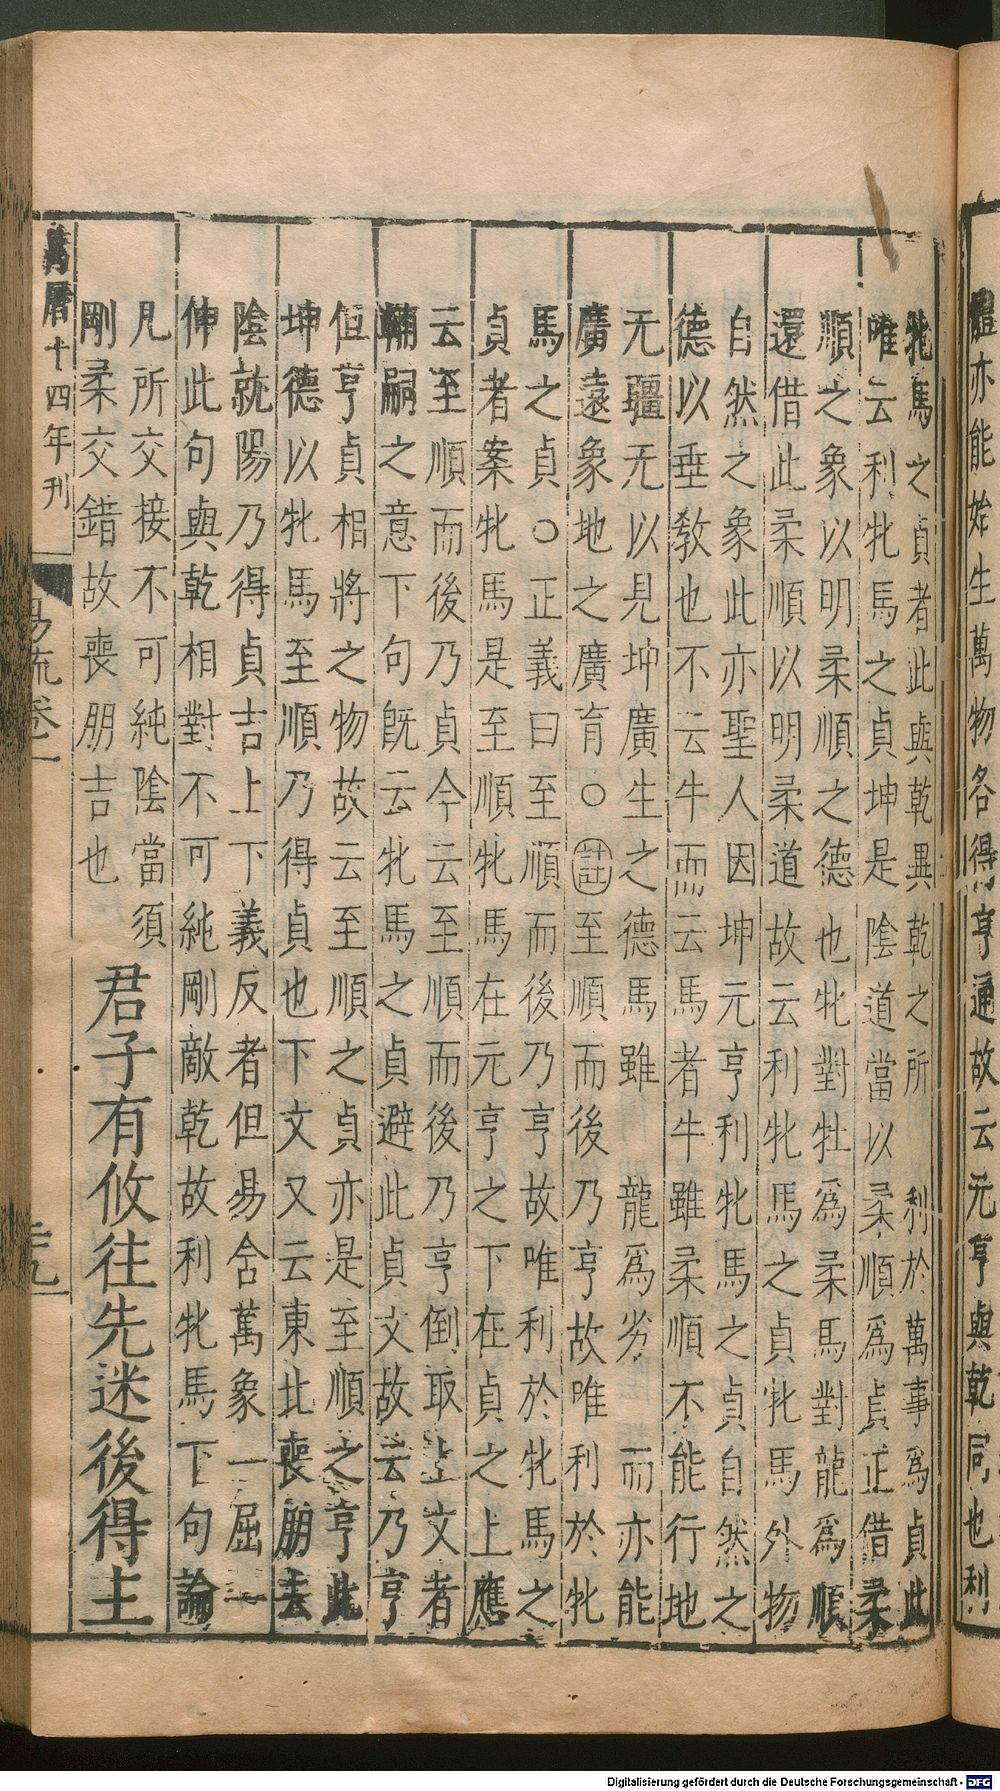 體亦能始生萬物各得亨通故云元亨與乾同也利
牝馬之貞者此與乾異乾之所利於萬事爲貞此
唯云利牝馬之貞坤是陰道當以柔順爲貞正借柔
順之象以明柔順之德也牝對牡爲柔馬對龍爲順
還借此柔順以明柔道故云利牝馬之貞牝馬外物
自然之象此亦聖人因坤元亨利牝馬之貞自然之
德以垂教也不云牛而云馬者牛雖柔順不能行地
无疆无以見坤廣生之德馬雖龍爲劣而亦能
廣遠象地之廣育○註至順而後乃亨故唯利於牝
馬之貞○正義曰至順而後乃亨故唯利於牝馬之
貞者案牝馬是至順牝馬在元亨之下在貞之上應
云至順而後乃貞今云至順而後乃亨倒取上文者
輔嗣之意下句既云牝馬之貞避此貞文故云乃亨
但亨貞相將之物故云至順之貞亦是至順之亨此
坤德以牝馬至順乃得貞也下文又云東北喪朋去
陰就陽乃得貞吉上下義反者但易含萬象一屈一
伸此句與乾相對不可純剛敵乾故利牝馬下句論
凡所交接不可純陰當須
剛柔交錯故喪朋吉也
君子有攸往先迷後得主
萬曆十四年刊
易疏卷一
三九
Digitalisierung gefördert durch die Deutsche Forschungsgemeinschaft - DFG